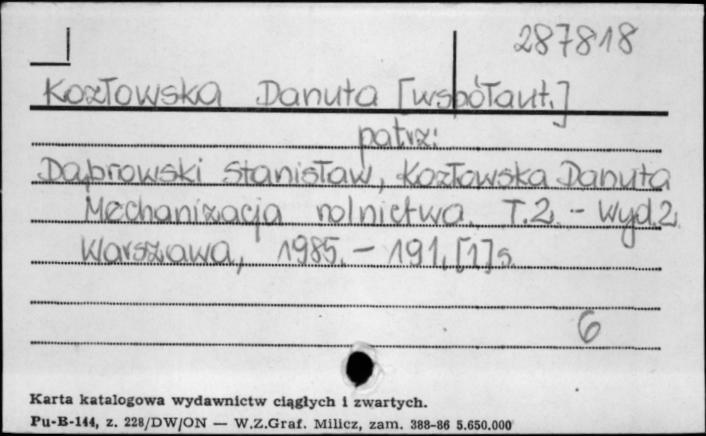 287818
Kozłowska Danuta [współaut.]
patrz:
Dąbrowski Stanisław, Kozłowska Danuta
Mechanizacja rolnictwa. T.2. - Wyd.2.
Warszawa, 1985. - 191, [1] s.
6
Karta katalogowa wydawnictw ciągłych i zwartych.
Pu-B-144, z. 228/DW/ON — W.Z.Graf. Milicz, zam. 388-86 5.650.000